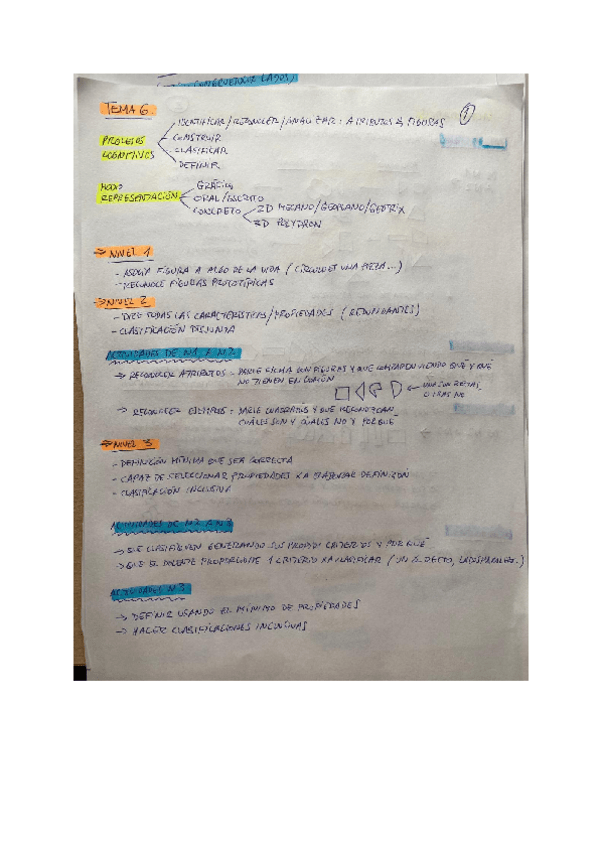 (... CONSECUTIVOS LADOS)
TEMA 6
1
PROCESOS COGNITIVOS
IDENTIFICAR/RECONOCER/ANALIZAR: ATRIBUTOS & FIGURAS
CONSTRUIR
CLASIFICAR
DEFINIR
MODO REPRESENTACIÓN
GRÁFICA
ORAL/ESCRITO
CONCRETO
2D MECANO/GEOPLANO/GEOTRIX
3D POLYDRON
→ NIVEL 1
- ASOCIA FIGURA A ALGO DE LA VIDA (CÍRCULO ES UNA PIZZA...)
- RECONOCE FIGURAS PROTOTÍPICAS
→ NIVEL 2
- DICE TODAS LAS CARACTERÍSTICAS/PROPIEDADES (REDUNDANTES)
- CLASIFICACIÓN DISJUNTA
ACTIVIDADES DE N1 A N2
→ RECONOCER ATRIBUTOS: DARLE FICHA CON FIGURAS Y QUE COMPAREN VIENDO QUÉ Y QUÉ
NO TIENEN EN COMÚN
UNA CON RECTAS,
OTRAS NO
→ RECONOCER EJEMPLOS: DARLE CUADRADOS Y QUE RECONOZCAN
CUÁLES SON Y CUÁLES NO Y PORQUE
→ NIVEL 3
- DEFINICIÓN MÍNIMA QUE SER CORRECTA
- CAPAZ DE SELECCIONAR PROPIEDADES XA ELABORAR DEFINICIÓN
- CLASIFICACIÓN INCLUSIVA
ACTIVIDADES DE N2 A N3
→ QUE CLASIFIQUEN GENERANDO SUS PROPIOS CRITERIOS Y POR QUÉ
→ QUE EL DOCENTE PROPORCIONE 1 CRITERIO XA CLASIFICAR (UN ∡ RECTO, LADOS PARALEL..)
ACTIVIDADES N3
→ DEFINIR USANDO EL MÍNIMO DE PROPIEDADES
→ HACER CLASIFICACIONES INCLUSIVAS